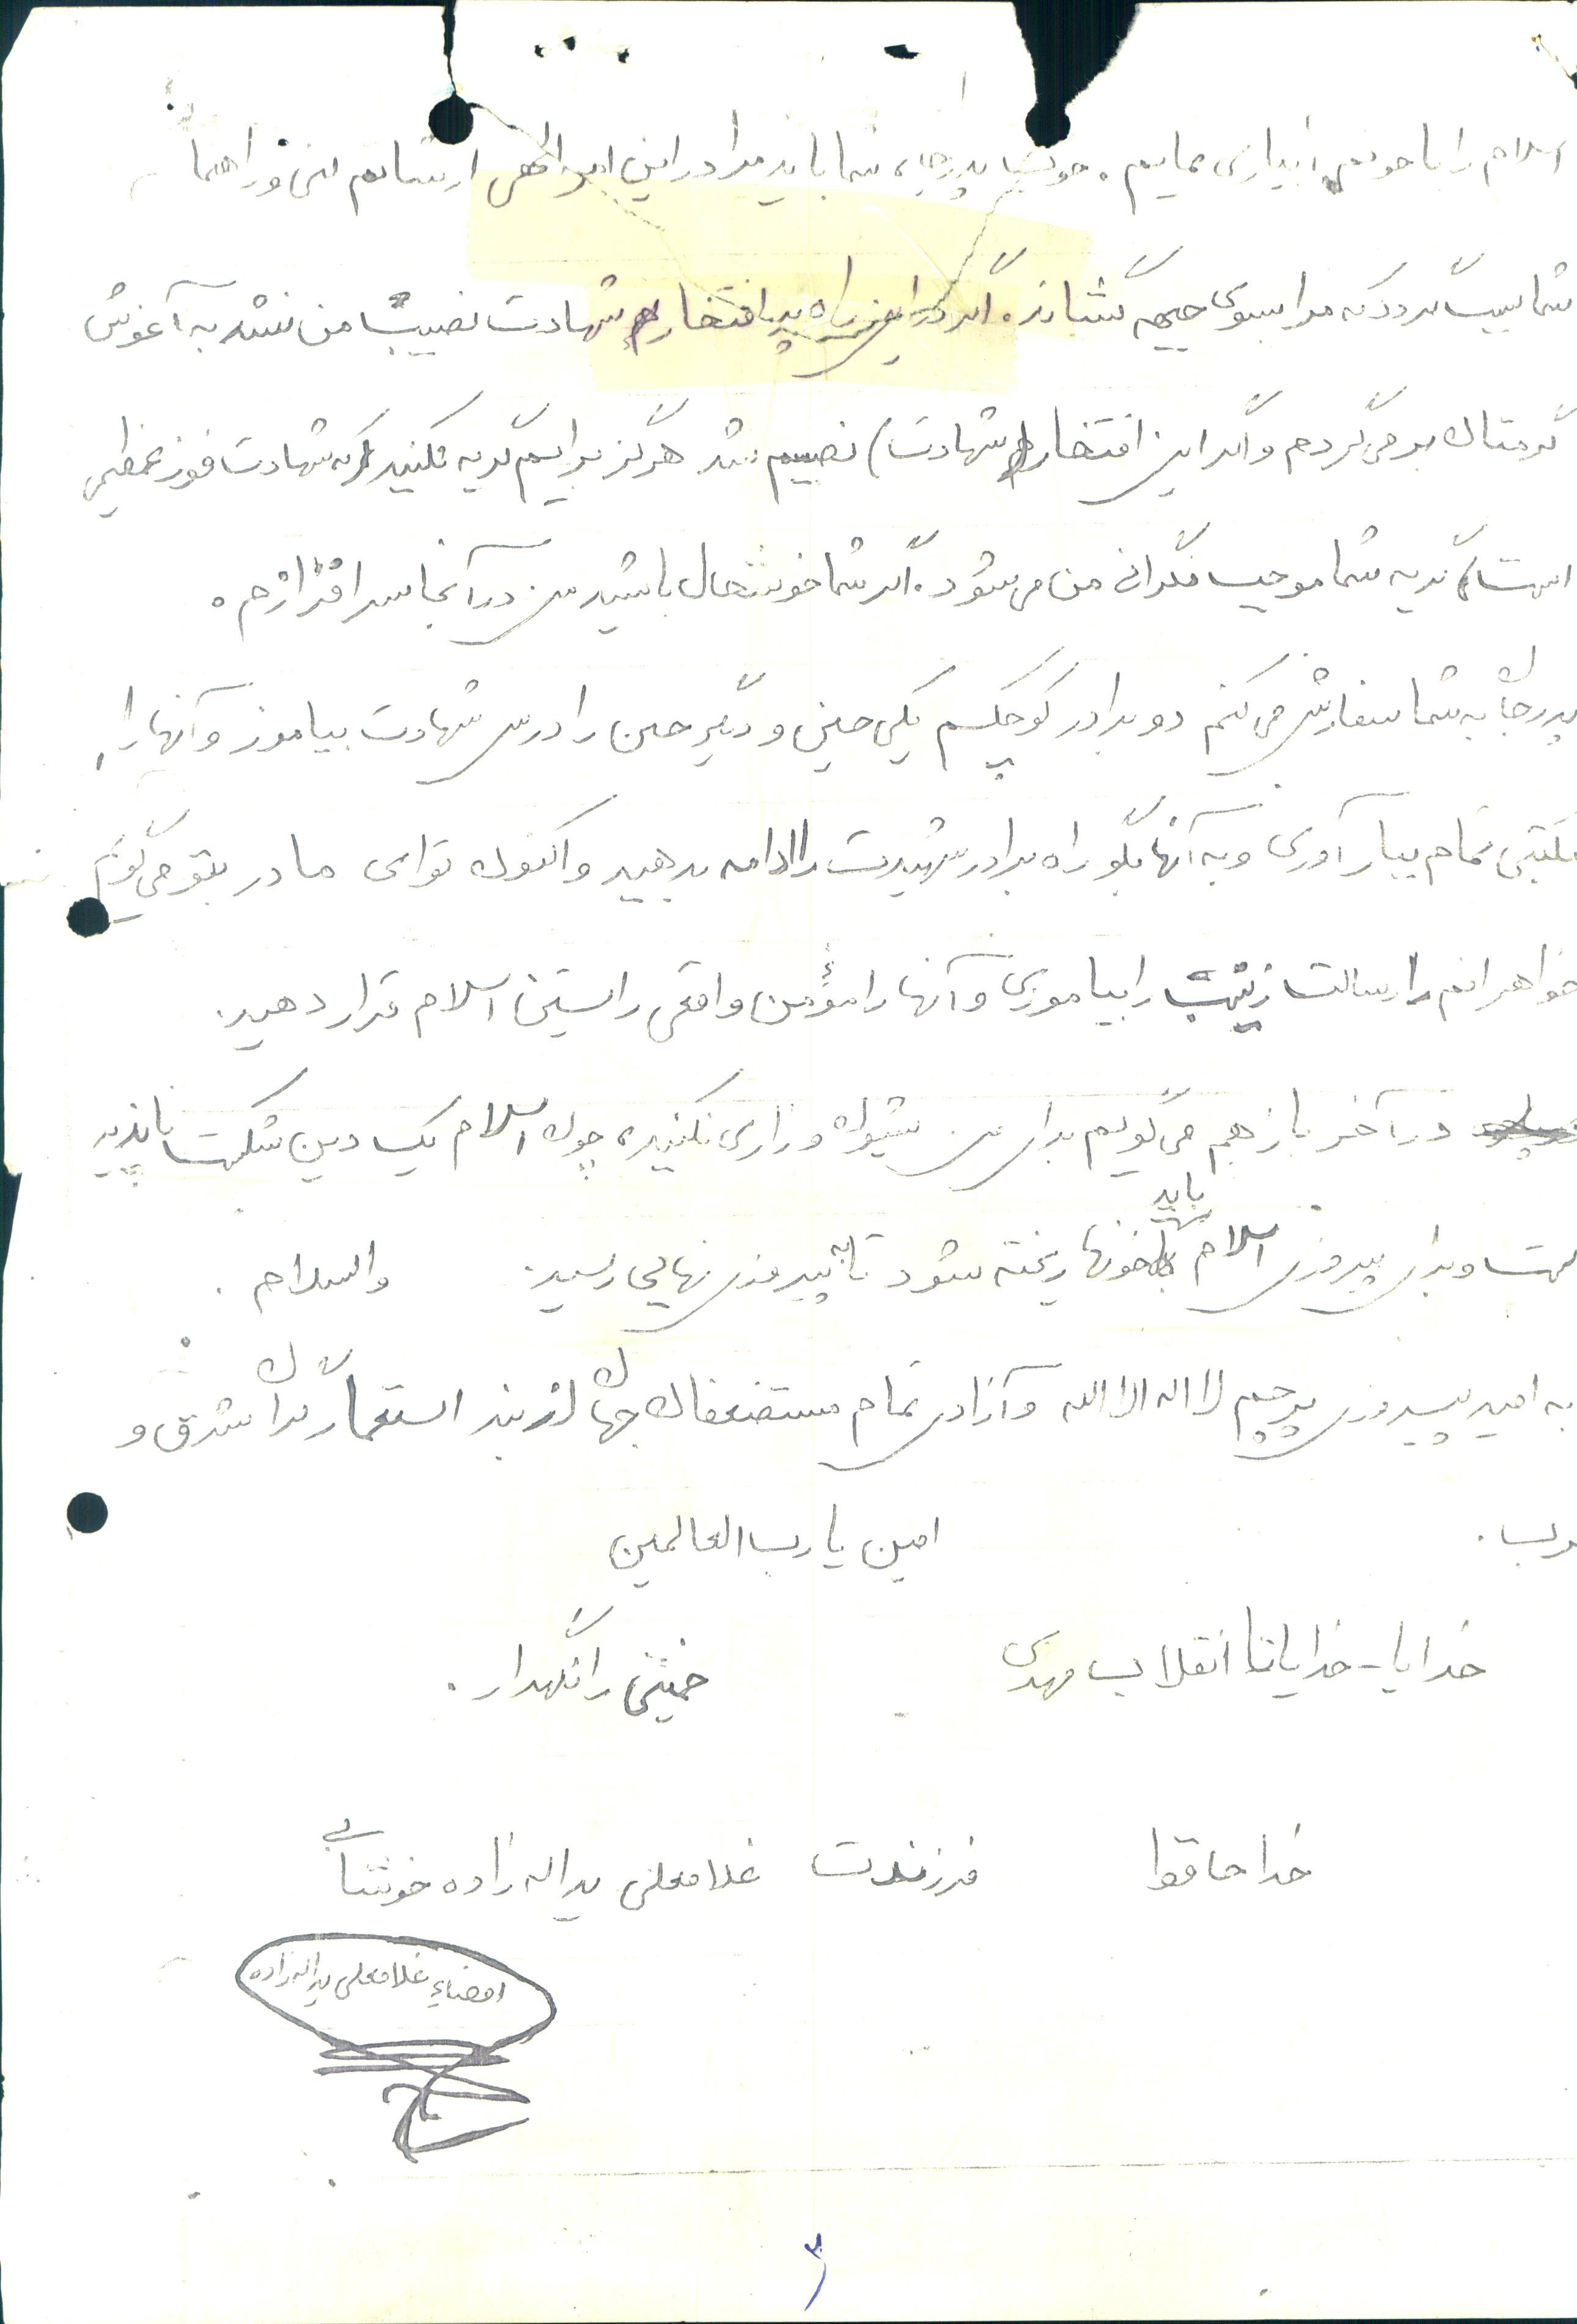 اسلام را با خونم آبیاری نمایم. پدر جان شما باید مرا در این امر الهی
شما بود که مرا بسوی جبهه کشاند. اگر در این راه پر افتخار شهادت نصیب من نشد به آغوش
گرمتان بر می‌گردم و اگر این افتخار (شهادت) نصیبم شد هرگز برایم گریه نکنید که شهادت فوز عظیمی
است گریه شما موجب نگرانی من می شود. اگر شما خوشحال باشید من در آنجا سرافرازم.
پدر جان به شما سفارش می کنم دو برادر کوچکم یکی حسین و دیگر حسن را درس شهادت بیاموز و آنها را
مکتبی تمام ببار آوری و به آنها بگو راه برادر شهیدت را ادامه بدهید و اکنون تو ای مادر بتو می گویم
خواهرانم را رسالت زینب را بیاموزی و آنها را مؤمن واقعی راستین اسلام قرار دهید.
در آخر باز هم می گویم برای من شیون و زاری نکنید، چون اسلام یک دین شکست ناپذیر
است و برای پیروزی اسلام باید خونها ریخته شود تا به پیروزی نهایی رسید. والسلام .
به امید پیروزی پرچم لا اله الا الله و آزادی تمام مستضعفان جهان از بند استعمارگران شرق و
غرب . امین یا رب العالمین
خدایا - خدایا تا انقلاب مهدی خمینی را نگهدار.
خدا حافظ فرزندت غلامعلی یداله زاده خوشابی
امضای غلامعلی یداله زاده
۳